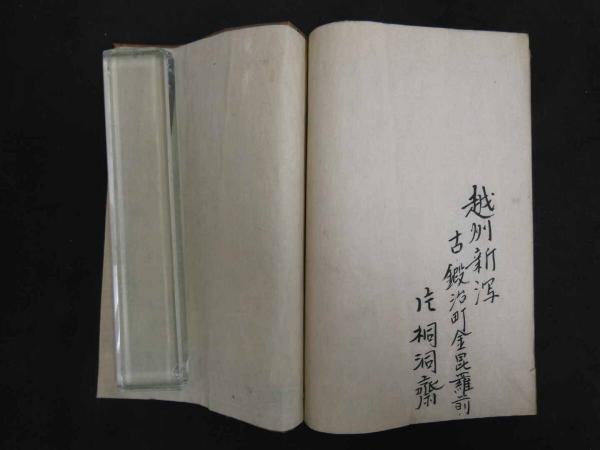 越州新潟
古鍛冶町金毘羅前
片桐洞齋